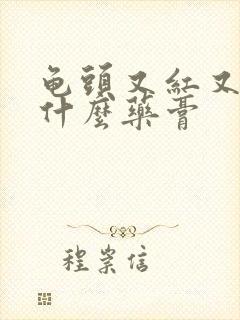 龟頭又紅又
什麼藥膏
程崇信